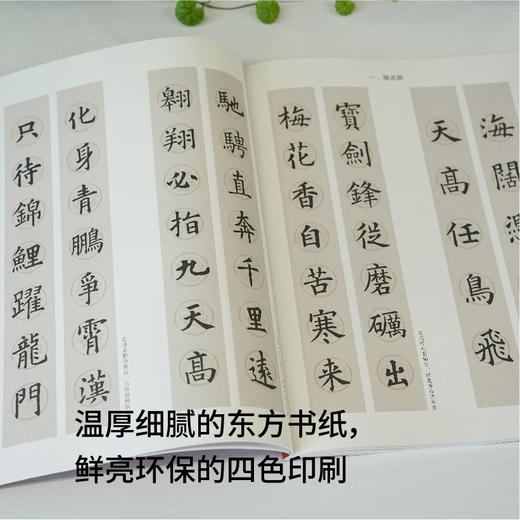 馳騁直奔千里遠
翱翔必指九天高
化身青鵬爭霄漢
只待錦鯉躍龍門
海闊
天高任鳥飛
寶劍鋒從磨礪出
梅花香自苦寒来
温厚细腻的东方书纸，
鲜亮环保的四色印刷